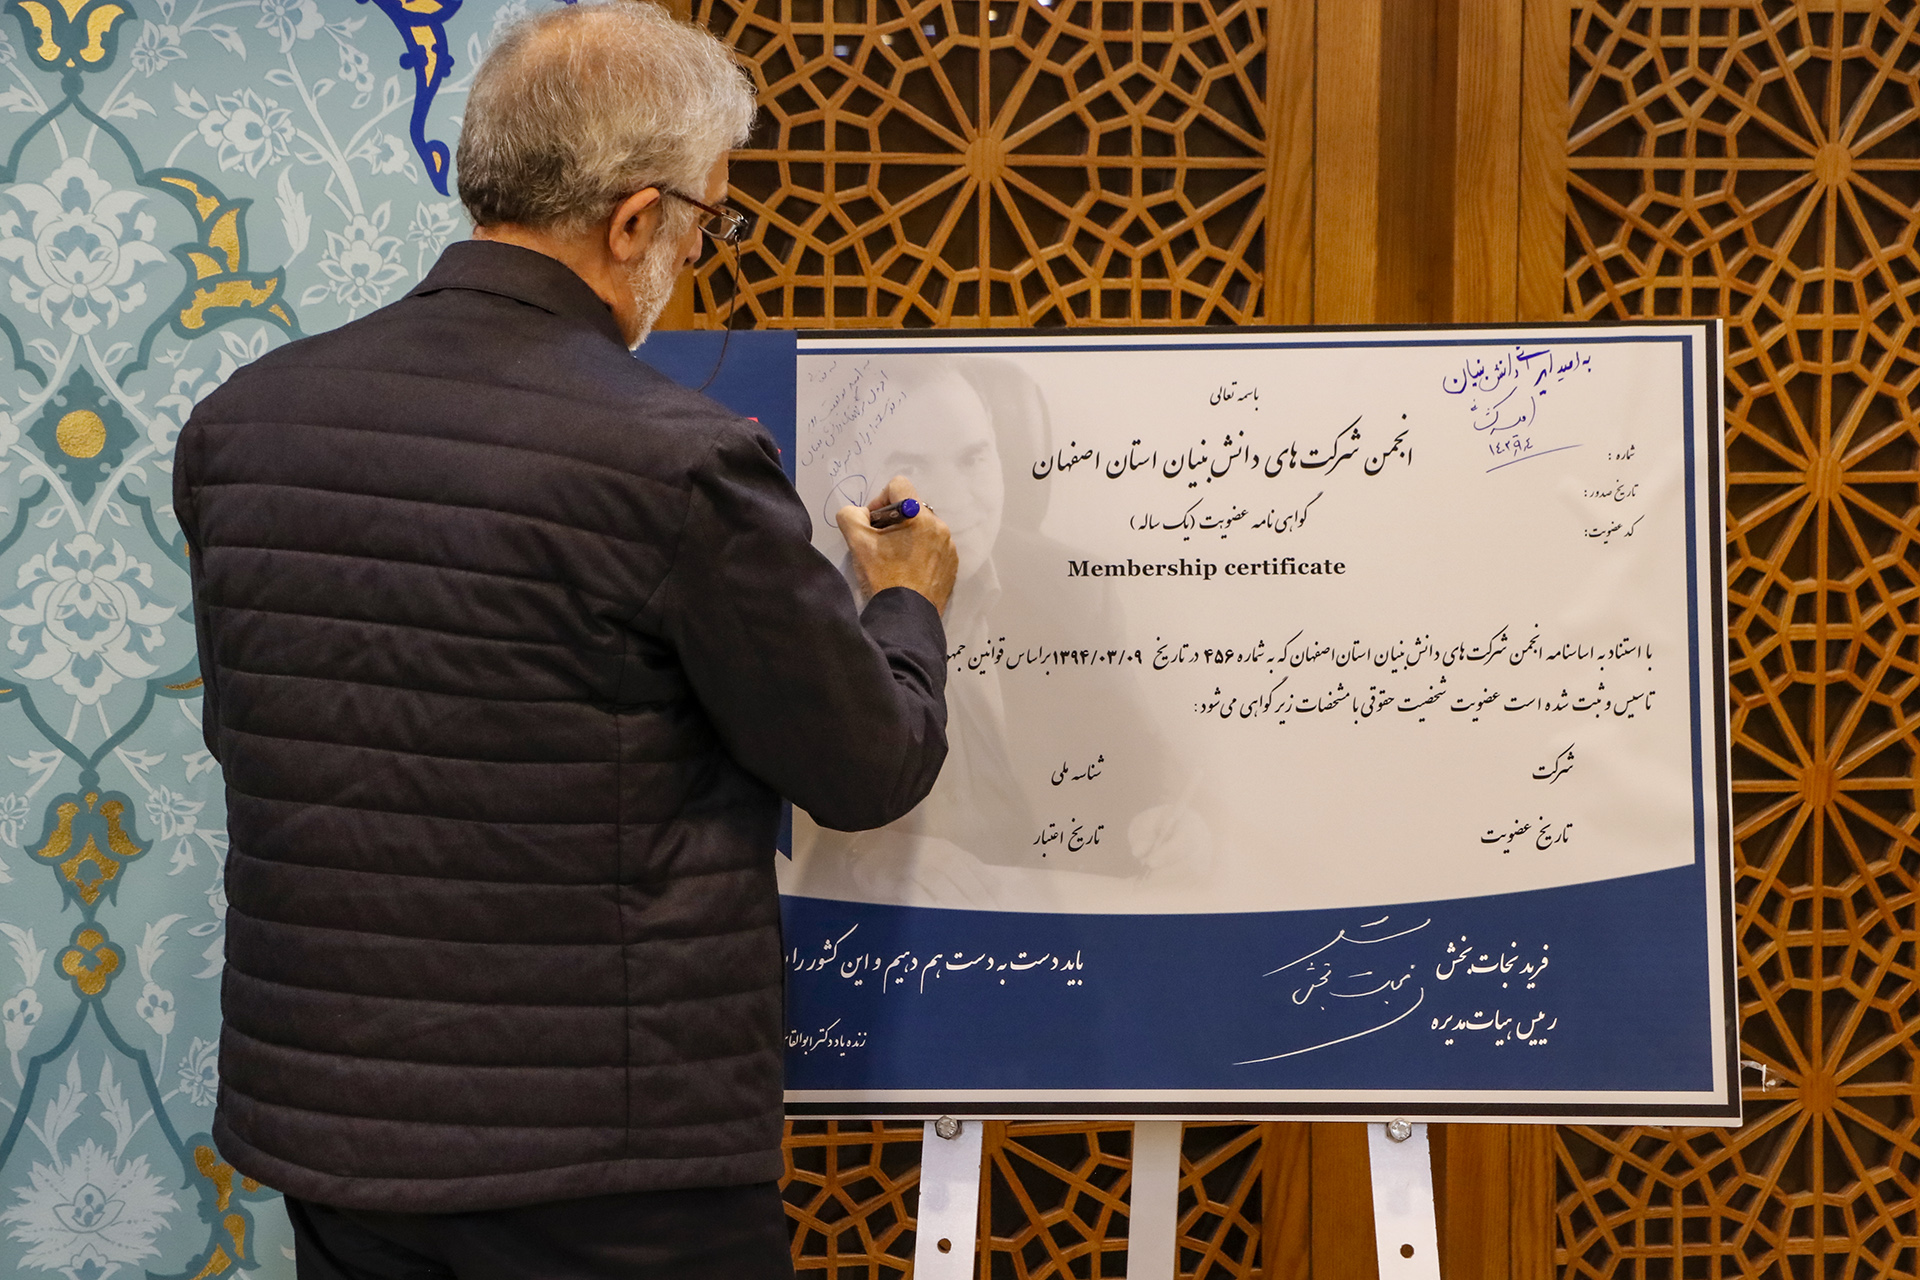 باسمه تعالی
انجمن شرکت های دانش بنیان استان اصفهان
گواهی نامه عضویت (یک ساله)
Membership certificate
به امید ایرانی دانش بنیان
شماره :
تاریخ صدور :
کد عضویت:
با استناد به اساسنامه انجمن شرکت های دانش بنیان استان اصفهان که به شماره ۴۵۶ در تاریخ ۱۳۹۴/۰۳/۰۹ براساس قوانین
تاسیس و ثبت شده است عضویت شخصیت حقوقی با مشخصات زیر گواهی می شود :
شرکت
شناسه ملی
تاریخ عضویت
تاریخ اعتبار
فرید نجات بخش
رییس هیات مدیره
باید دست به دست هم دهیم و این کشور را
زنده یاد دکتر